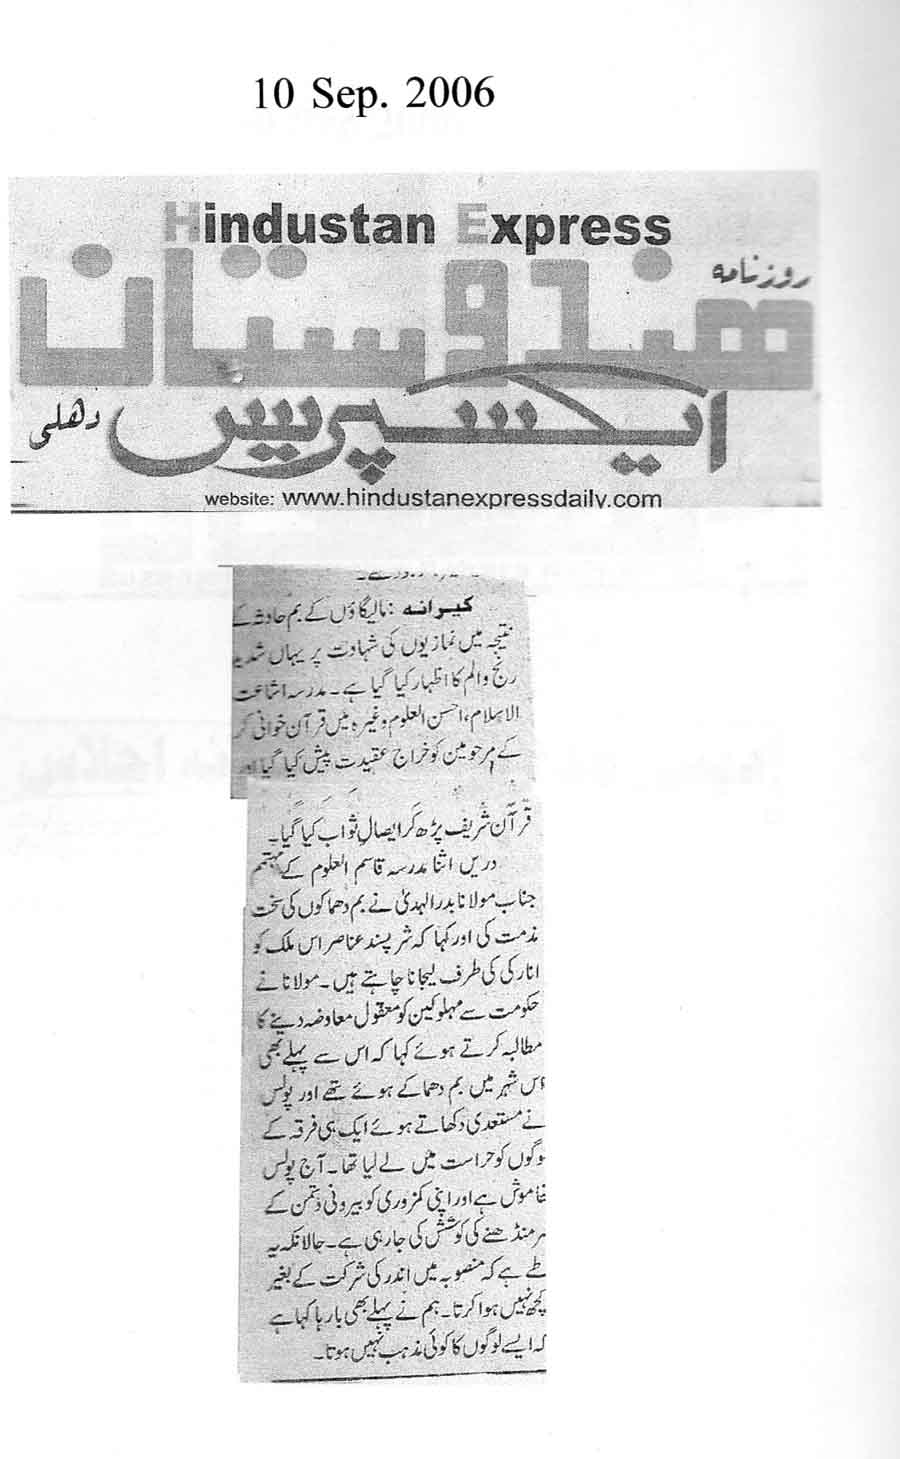 10 Sep. 2006
Hindustan Express
روزنامہ
ھندوستان
ایکسپریس
دھلی
website: www.hindustanexpressdaily.com
کیرانہ: مالیگاؤں کے بم حادثہ کے
نتیجہ میں نمازیوں کی شہادت پر یہاں شدید
رنج والم کا اظہار کیا گیا ہے۔ مدرسہ اشاعت
الاسلام، احسن العلوم وغیرہ میں قرآن خوانی کر
کے مرحومین کو خراج عقیدت پیش کیا گیا اور
قرآن شریف پڑھ کر ایصالِ ثواب کیا گیا۔
دریں اثنا مدرسہ قاسم العلوم کے مہتمم
جناب مولانا بدر الہدیٰ نے بم دھماکوں کی سخت
مذمت کی اور کہا کہ شرپسند عناصر اس ملک کو
انارکی کی طرف لیجانا چاہتے ہیں۔ مولانا نے
حکومت سے مہلوکین کو معقول معاوضہ دینے کا
مطالبہ کرتے ہوئے کہا کہ اس سے پہلے بھی
اس شہر میں بم دھماکے ہوئے تھے اور پولس
نے مستعدی دکھاتے ہوئے ایک ہی فرقہ کے
لوگوں کو حراست میں لے لیا تھا۔ آج پولس
خاموش ہے اور اپنی کمزوری کو بیرونی دشمن کے
سر منڈھنے کی کوشش کی جارہی ہے۔ حالانکہ یہ
طے ہے کہ منصوبہ میں اندر کی شرکت کے بغیر
کچھ نہیں ہوا کرتا۔ ہم نے پہلے بھی بارہا کہا ہے
کہ ایسے لوگوں کا کوئی مذہب نہیں ہوتا۔